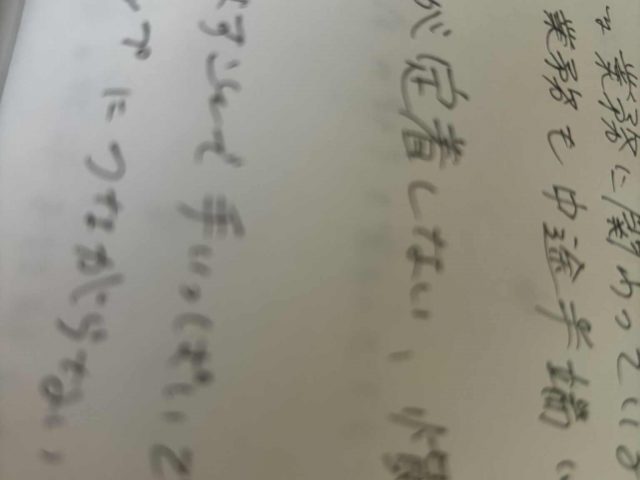 業務に関わっている
業務も中途半端に
が定着しない、
手いっぱい、と
プにつながらない、